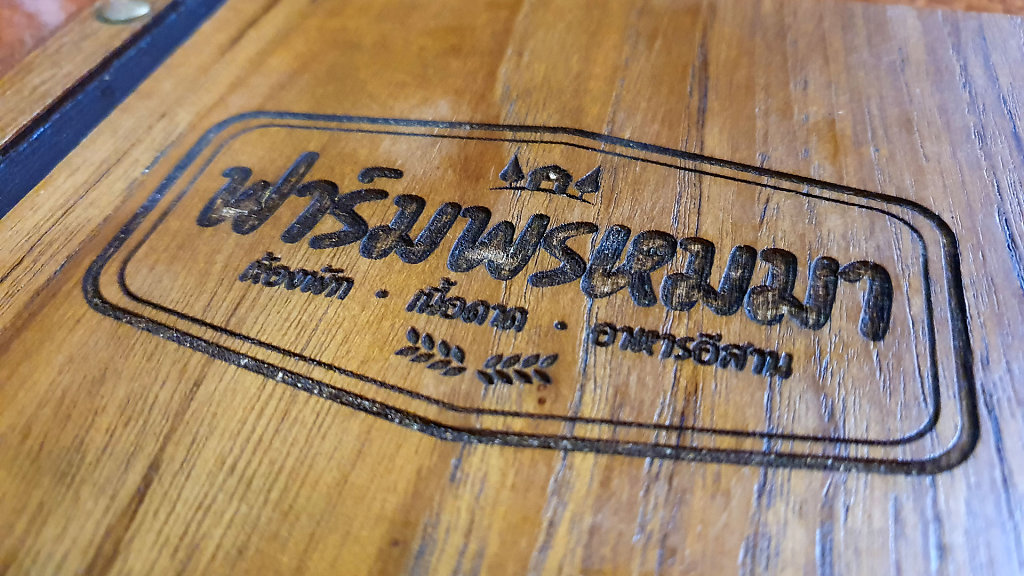 ฟาร์มพรหมมา
ห้องพัก · เนื้อดาด · อาหารอีสาน